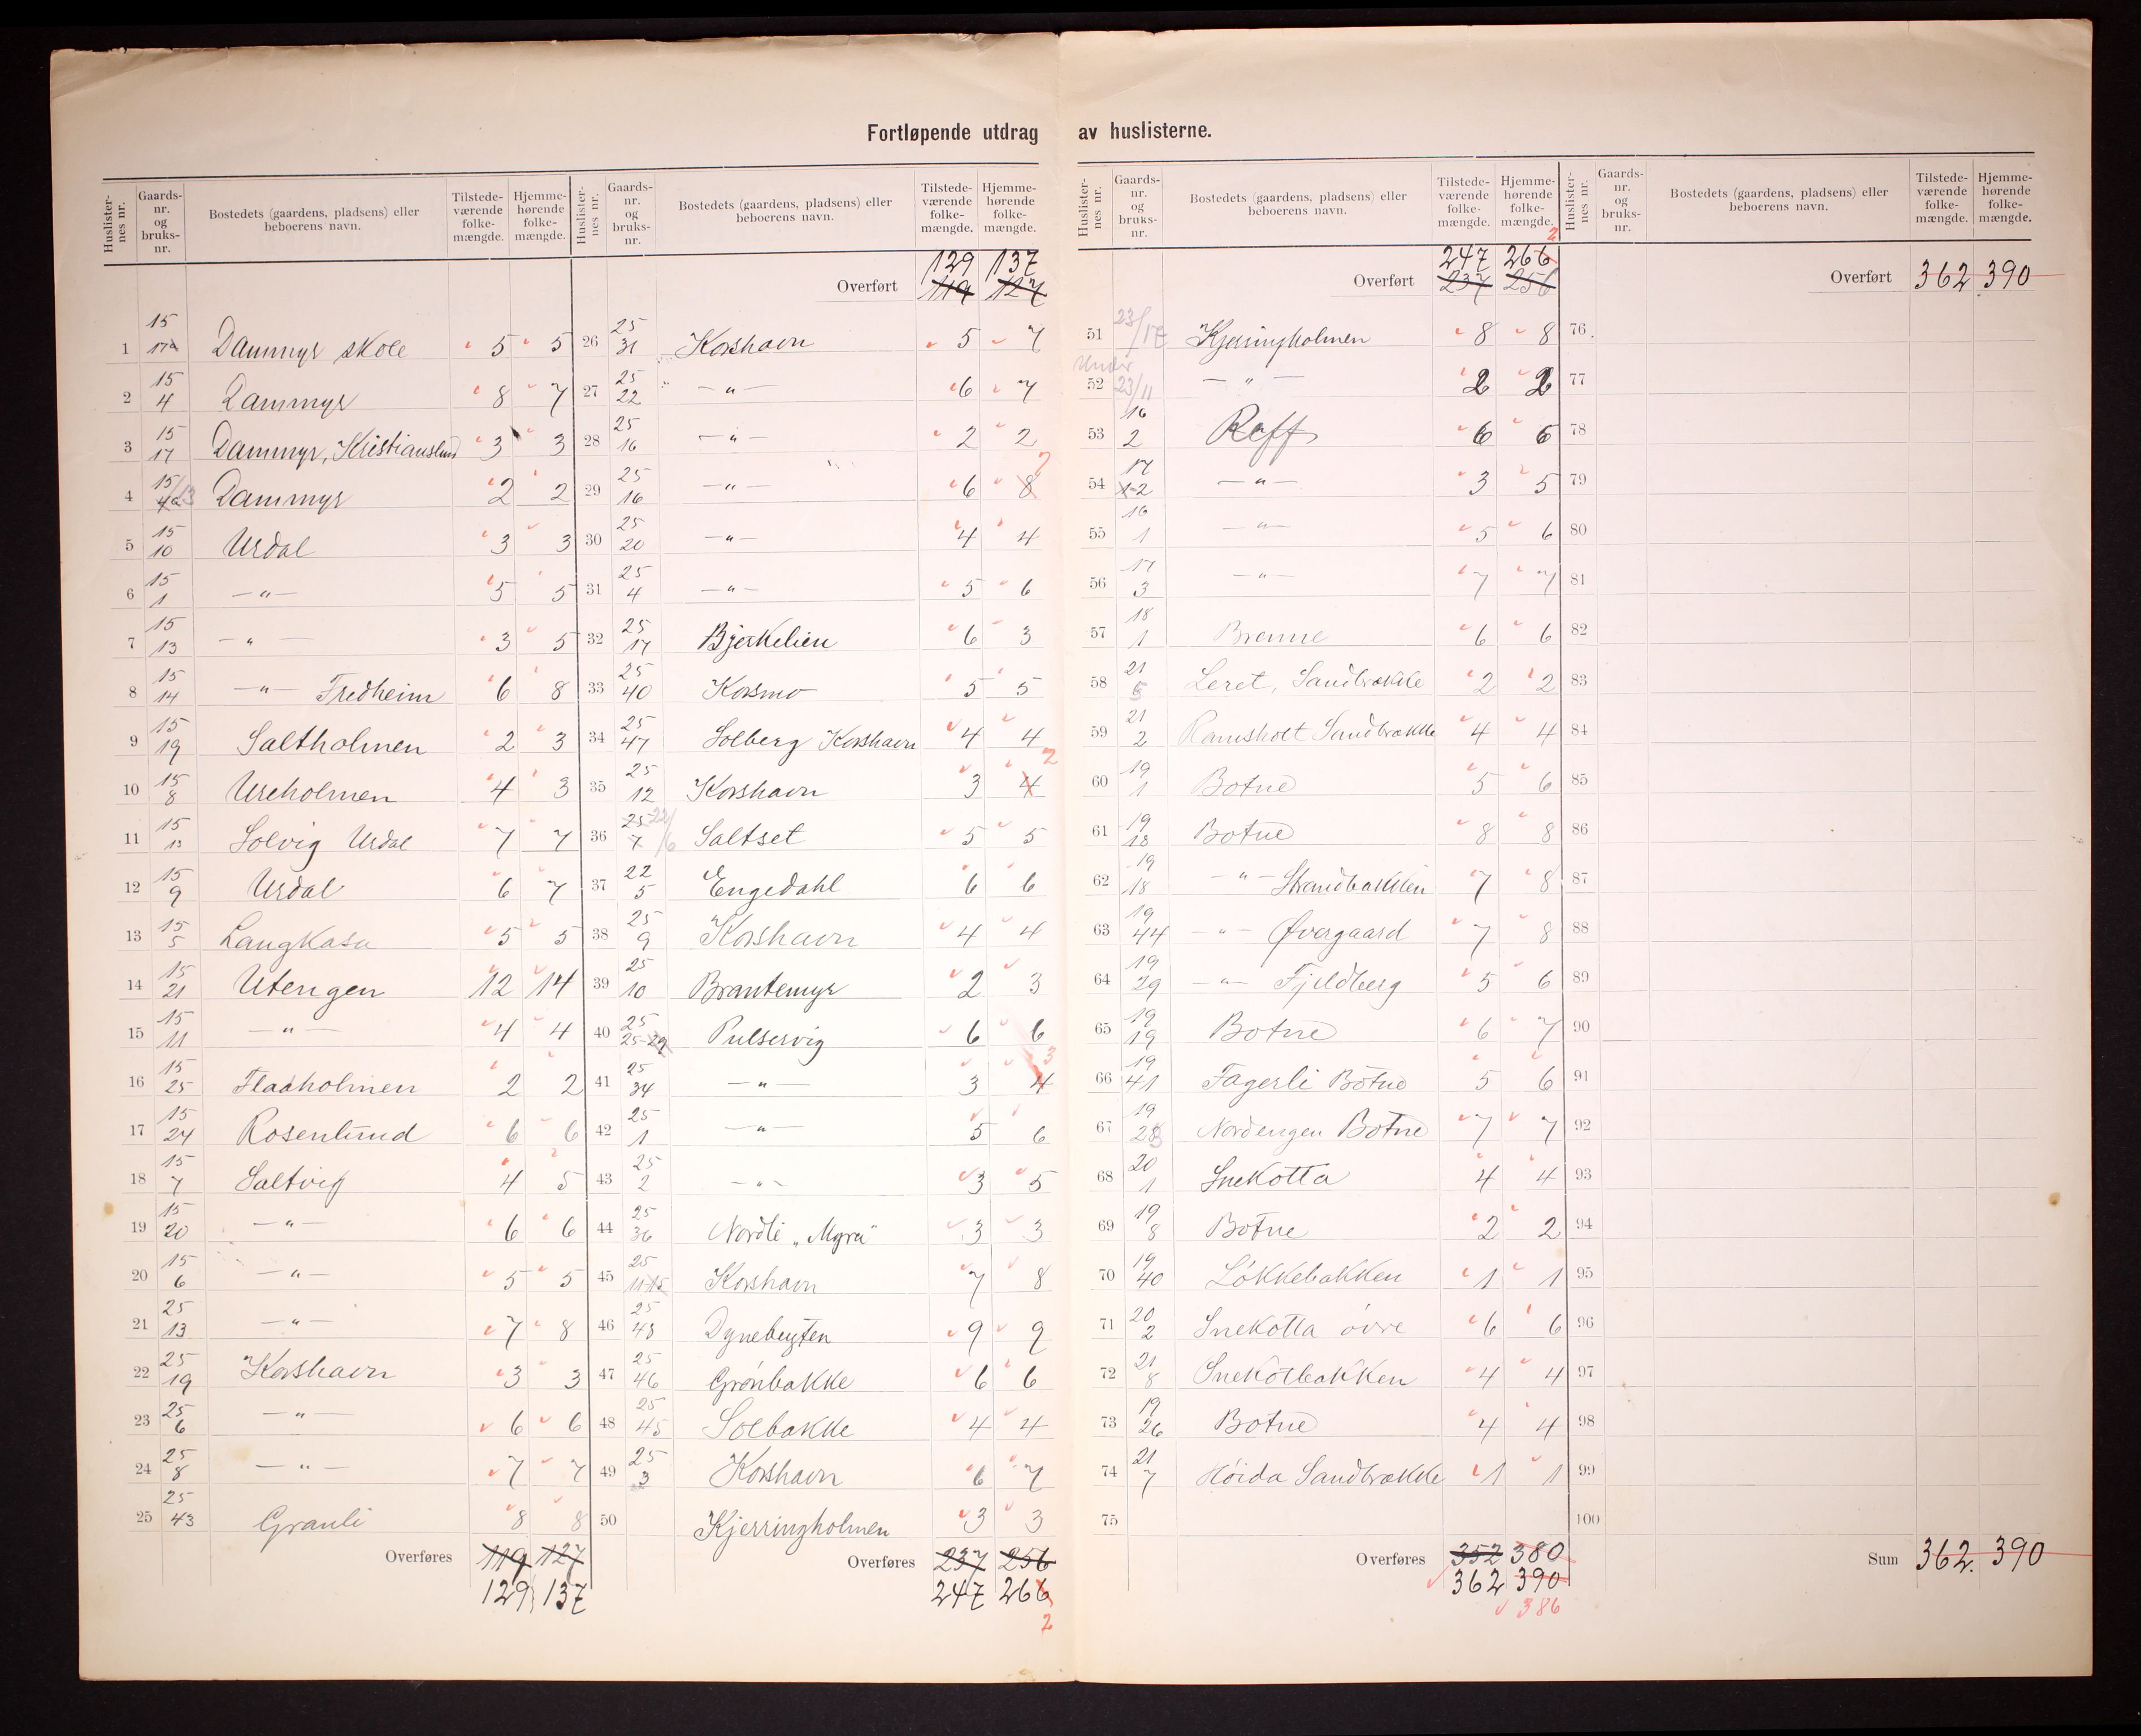 Fortløpende utdrag av huslisterne.
Huslisternes nr. Gaards-nr. og bruks-nr. Bostedets (gaardens, pladsens) eller beboerens navn. Tilstede-værende folke-mængde. Hjemme-hørende folke-mængde.
1 15 17a Dammyr skole 5 5
2 15 4 Dammyr 8 7
3 15 17 Dammyr, Kristianslund 3 3
4 15/13 4a Dammyr 2 2
5 15 10 Urdal 3 3
6 15 1 —"— 5 5
7 15 13 —"— 3 5
8 15 14 —"— Fredheim 6 8
9 15 19 Saltholmen 2 3
10 15 8 Ureholmen 4 3
11 15 Solvig Urdal 7 7
12 15 9 Urdal 6 7
13 15 5 Langkasa 5 5
14 15 21 Utengen 12 14
15 15 11 —"— 4 4
16 15 25 Fladholmen 2 2
17 15 24 Rosenlund 6 6
18 15 7 Saltvig 4 5
19 15 20 —"— 6 6
20 15 6 —"— 5 5
21 25 13 —"— 7 8
22 25 19 Korshavn 3 3
23 25 6 —"— 6 6
24 25 8 —"— 7 7
25 25 43 Granli 8 8
Overføres 119 127
129 137
Huslisternes nr. Gaards-nr. og bruks-nr. Bostedets (gaardens, pladsens) eller beboerens navn. Tilstede-værende folke-mængde. Hjemme-hørende folke-mængde.
129 137
Overført 119 127
26 25 31 Korshavn 5 7
27 25 22 —"— 6 7
28 25 16 —"— 2 2
29 25 16 —"— 6 8 7
30 25 20 —"— 4 4
31 25 4 —"— 5 6
32 25 17 Bjerkelien 6 3
33 25 40 Korsmo 5 5
34 25 47 Solberg Korshavn 4 4
35 25 12 Korshavn 3 4 2
36 25 7 22/6 Saltset 5 5
37 22 5 Engedahl 6 6
38 25 9 Korshavn 4 4
39 25 10 Brantemyr 2 3
40 25 25-29 Pulservig 6 6
41 25 34 —"— 3 4 3
42 25 1 —"— 5 6
43 25 2 —"— 3 5
44 25 36 Nordli „Myra" 3 3
45 25 11-15 Korshavn 7 8
46 25 48 Dynebugten 9 9
47 25 46 Grønbakke 6 6
48 25 45 Solbakke 4 4
49 25 3 Korshavn 6 7
50 Kjerringholmen 3 3
Overføres 237 256
247 266
2
Huslisternes nr. Gaards-nr. og bruks-nr. Bostedets (gaardens, pladsens) eller beboerens navn. Tilstede-værende folke-mængde. Hjemme-hørende folke-mængde.
247 266 2
Overført 237 256
51 23/17 Kjerringholmen 8 8
52 Under 23/11 —"— 2 2
53 16 2 Reff 6 6
54 17 1-2 —"— 3 5
55 16 1 —"— 5 6
56 17 3 —"— 7 7
57 18 1 Brenne 6 6
58 21 5 Leret, Sandbrække 2 2
59 21 2 Ramsholt Sandbrække 4 4
60 19 1 Botne 5 6
61 19 18 Botne 8 8
62 19 18 —"— Strandbakken 7 8
63 19 44 —"— Øvergaard 7 8
64 19 29 —"— Fjeldberg 5 6
65 19 19 Botne 6 7
66 19 41 Fagerli Botne 5 6
67 19 28 Nordengen Botne 7 7
68 20 1 Snekotta 4 4
69 19 8 Botne 2 2
70 19 40 Løkkebakken 1 1
71 20 2 Snekotta øvre 6 6
72 21 8 Snekotbakken 4 4
73 19 26 Botne 4 4
74 21 7 Høida Sandbrække 1 1
75
Overføres 352 380
362 390
386
Huslisternes nr. Gaards-nr. og bruks-nr. Bostedets (gaardens, pladsens) eller beboerens navn. Tilstede-værende folke-mængde. Hjemme-hørende folke-mængde.
Overført 362 390
76
77
78
79
80
81
82
83
84
85
86
87
88
89
90
91
92
93
94
95
96
97
98
99
100
Sum 362. 390